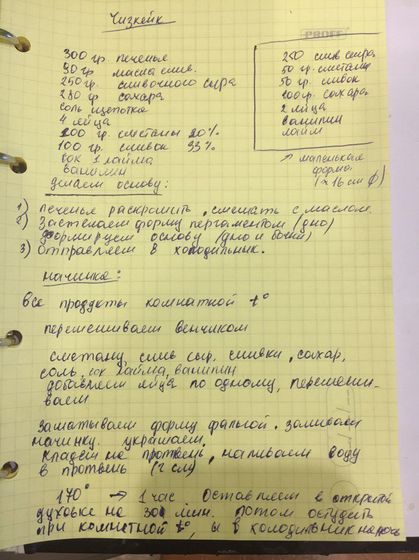 Чизкейк
PROFF
300 гр. печенье
90 гр. масла слив.
250 гр. сливочного сыра
200 гр сахара
соль щепотка
4 яйца
200 гр. сметаны 20%
100 гр. сливок 33%
сок 1 лайма
ванилин
250 слив сыра
50 гр. сметаны
50 гр. сливок
100 гр. сахара
2 яйца
ванилин
лайм
↗ маленькая
форма
16 см ф)
делаем основу:
1) Печенье раскрошить, смешать с маслом.
2) Застелаем форму пергаментом (дно)
формируем основу (дно и боки)
3) Отправляем в холодильник.
начинка:
Все продукты комнатной t°
перемешиваем венчиком
сметану, слив сыр, сливки, сахар,
соль, сок лайма, ванилин
добавляем яйца по одному, перемеши-
ваем
Заматываем форму фольгой. заливаем
начинку. украшаем,
кладем на протвень, наливаем воду
в протвень (2 см)
170° → 1 час. Оставляем в открытой
духовке на 30 мин. потом остудить
при комнатной t°, и в холодильник на ночь